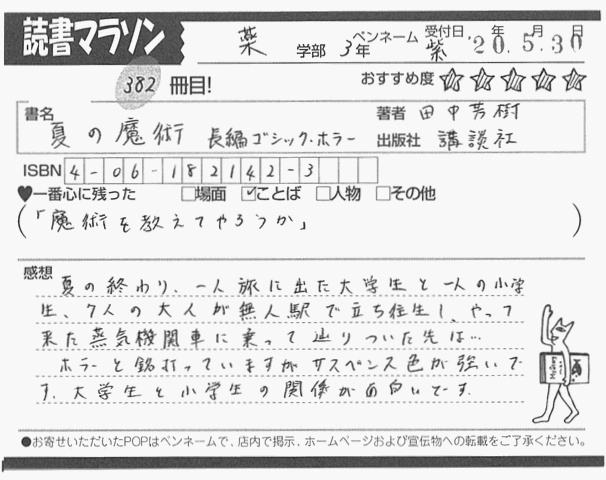 読書マラソン
薬 学部 3年 ペンネーム 紫 受付日 '20年 5月 30日
382 冊目!
おすすめ度 ☆☆☆☆☆
書名 夏の魔術 長編ゴシック・ホラー
著者 田中芳樹
出版社 講談社
ISBN 4-06-182142-3
♥一番心に残った □場面 ☑ことば □人物 □その他
(「魔術を教えてやろうか」)
感想 夏の終わり、一人旅に出た大学生と一人の小学
生、7人の大人が無人駅で立ち往生し、やって
来た蒸気機関車に乗って辿りついた先は…
ホラーと銘打っていますがサスペンス色が強いで
す。大学生と小学生の関係が面白いです。
●お寄せいただいたPOPはペンネームで、店内で掲示、ホームページおよび宣伝物への転載をご了承ください。